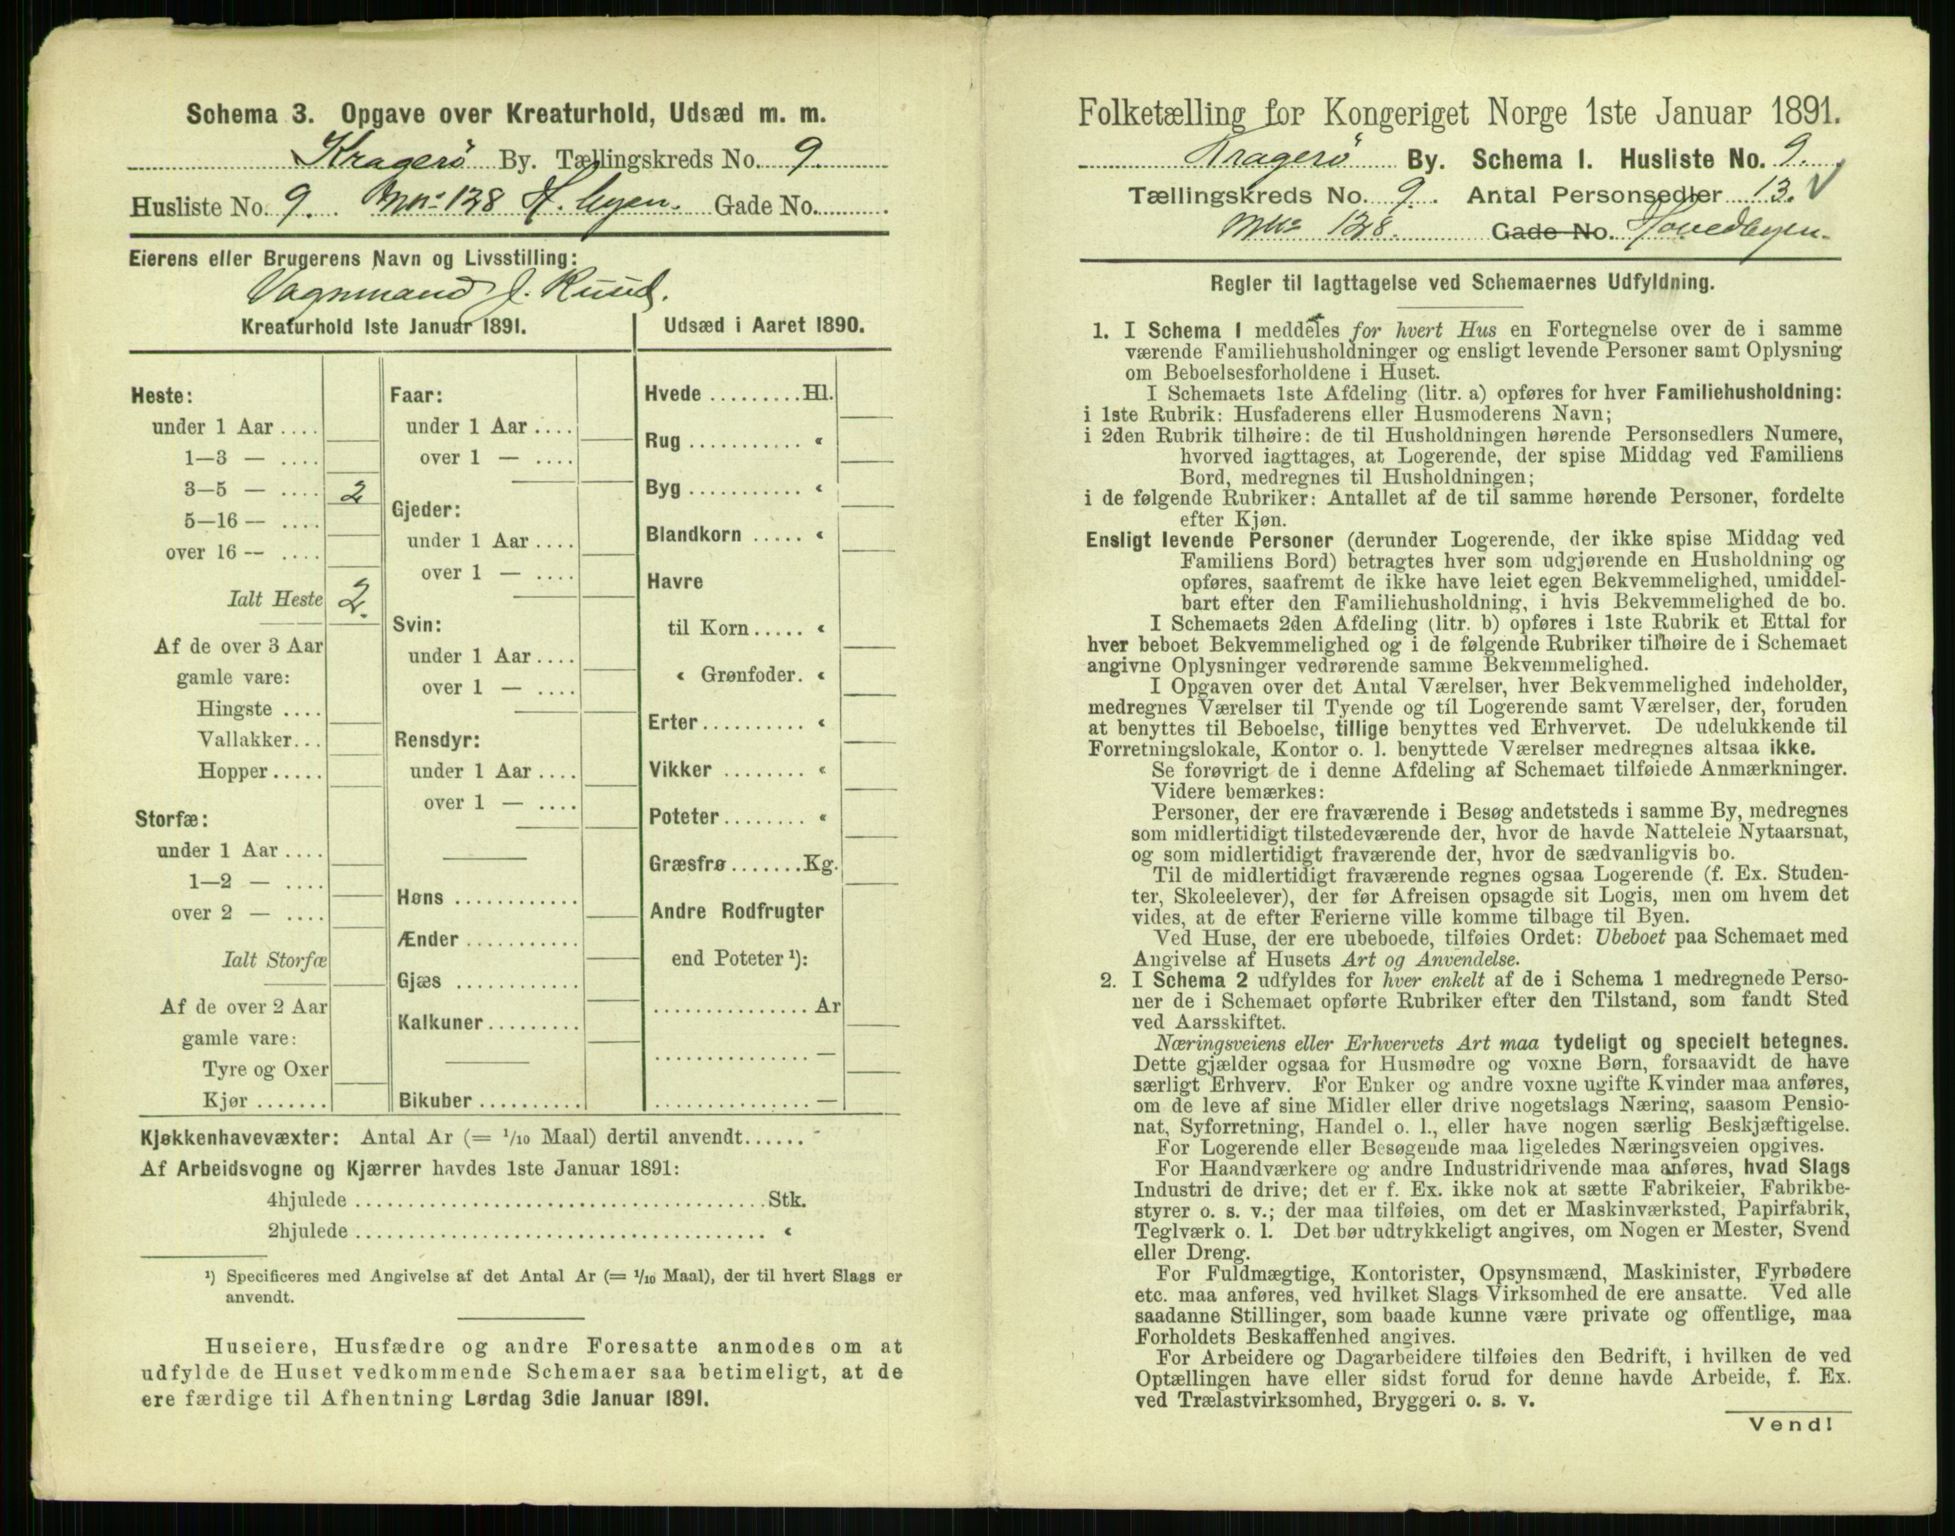 Schema 3. Opgave over Kreaturhold, Udsæd m. m.
Kragerö By. Tællingskreds No. 9.
Husliste No. 9. Mno 128 H. byen. Gade No.
Eierens eller Brugerens Navn og Livsstilling:
Vognmand J. Ruud.
Kreaturhold 1ste Januar 1891.
Heste:
under 1 Aar ....
1—3 — ....
3—5 — .... 2
5—16 — ....
over 16 — ....
Ialt Heste 2.
Af de over 3 Aar
gamle vare:
Hingste ....
Vallakker...
Hopper.....
Storfæ:
under 1 Aar ....
1—2 — ....
over 2 — ....
Ialt Storfæ
Af de over 2 Aar
gamle vare:
Tyre og Oxer
Kjør .......
Faar:
under 1 Aar ....
over 1 — ....
Gjeder:
under 1 Aar ....
over 1 — ....
Svin:
under 1 Aar ....
over 1 — ....
Rensdyr:
under 1 Aar ....
over 1 — ....
Høns ............
Ænder ...........
Gjæs ............
Kalkuner.........
Bikuber ..........
Udsæd i Aaret 1890.
Hvede .........Hl.
Rug ........... «
Byg ........... «
Blandkorn ..... «
Havre
til Korn..... «
« Grønfoder. «
Erter.......... «
Vikker ........ «
Poteter........ «
Græsfrø.......Kg.
Andre Rodfrugter
end Poteter ¹):
............... Ar
............... —
............... —
Kjøkkenhavevæxter: Antal Ar (= 1/10 Maal) dertil anvendt......
Af Arbeidsvogne og Kjærrer havdes 1ste Januar 1891:
4hjulede .......................................Stk.
2hjulede ....................................... «
¹) Specificeres med Angivelse af det Antal Ar (= 1/10 Maal), der til hvert Slags er
anvendt.
Huseiere, Husfædre og andre Foresatte anmodes om at
udfylde de Huset vedkommende Schemaer saa betimeligt, at de
ere færdige til Afhentning Lørdag 3die Januar 1891.
Folketælling for Kongeriget Norge 1ste Januar 1891.
Kragerö By. Schema 1. Husliste No. 9.
Tællingskreds No. 9. Antal Personsedler 13. √
Mno 128. Gade No. Hovedbyen.
Regler til Iagttagelse ved Schemaernes Udfyldning.
1. I Schema 1 meddeles for hvert Hus en Fortegnelse over de i samme
værende Familiehusholdninger og ensligt levende Personer samt Oplysning
om Beboelsesforholdene i Huset.
I Schemaets 1ste Afdeling (litr. a) opføres for hver Familiehusholdning:
i 1ste Rubrik: Husfaderens eller Husmoderens Navn;
i 2den Rubrik tilhøire: de til Husholdningen hørende Personsedlers Numere,
hvorved iagttages, at Logerende, der spise Middag ved Familiens
Bord, medregnes til Husholdningen;
i de følgende Rubriker: Antallet af de til samme hørende Personer, fordelte
efter Kjøn.
Ensligt levende Personer (derunder Logerende, der ikke spise Middag ved
Familiens Bord) betragtes hver som udgjørende en Husholdning og
opføres, saafremt de ikke have leiet egen Bekvemmelighed, umiddel-
bart efter den Familiehusholdning, i hvis Bekvemmelighed de bo.
I Schemaets 2den Afdeling (litr. b) opføres i 1ste Rubrik et Ettal for
hver beboet Bekvemmelighed og i de følgende Rubriker tilhøire de i Schemaet
angivne Oplysninger vedrørende samme Bekvemmelighed.
I Opgaven over det Antal Værelser, hver Bekvemmelighed indeholder,
medregnes Værelser til Tyende og til Logerende samt Værelser, der, foruden
at benyttes til Beboelse, tillige benyttes ved Erhvervet. De udelukkende til
Forretningslokale, Kontor o. l. benyttede Værelser medregnes altsaa ikke.
Se forøvrigt de i denne Afdeling af Schemaet tilføiede Anmærkninger.
Videre bemærkes:
Personer, der ere fraværende i Besøg andetsteds i samme By, medregnes
som midlertidigt tilstedeværende der, hvor de havde Natteleie Nytaarsnat,
og som midlertidigt fraværende der, hvor de sædvanligvis bo.
Til de midlertidigt fraværende regnes ogsaa Logerende (f. Ex. Studen-
ter, Skoleelever), der før Afreisen opsagde sit Logis, men om hvem det
vides, at de efter Ferierne ville komme tilbage til Byen.
Ved Huse, der ere ubeboede, tilføies Ordet: Ubeboet paa Schemaet med
Angivelse af Husets Art og Anvendelse.
2. I Schema 2 udfyldes for hver enkelt af de i Schema 1 medregnede Perso-
ner de i Schemaet opførte Rubriker efter den Tilstand, som fandt Sted
ved Aarsskiftet.
Næringsveiens eller Erhvervets Art maa tydeligt og specielt betegnes.
Dette gjælder ogsaa for Husmødre og voxne Børn, forsaavidt de have
særligt Erhverv. For Enker og andre voxne ugifte Kvinder maa anføres,
om de leve af sine Midler eller drive nogetslags Næring, saasom Pensio-
nat, Syforretning, Handel o. l., eller have nogen særlig Beskjæftigelse.
For Logerende eller Besøgende maa ligeledes Næringsveien opgives.
For Haandværkere og andre Industridrivende maa anføres, hvad Slags
Industri de drive; det er f. Ex. ikke nok at sætte Fabrikeier, Fabrikbe-
styrer o. s. v.; der maa tilføies, om det er Maskinværksted, Papirfabrik,
Teglværk o. l. Det bør udtrykkeligt angives, om Nogen er Mester, Svend
eller Dreng.
For Fuldmægtige, Kontorister, Opsynsmænd, Maskinister, Fyrbødere
etc. maa anføres, ved hvilket Slags Virksomhed de ere ansatte. Ved alle
saadanne Stillinger, som baade kunne være private og offentlige, maa
Forholdets Beskaffenhed angives.
For Arbeidere og Dagarbeidere tilføies den Bedrift, i hvilken de ved
Optællingen have eller sidst forud for denne havde Arbeide, f. Ex.
ved Trælastvirksomhed, Bryggeri o. s. v.
Vend!